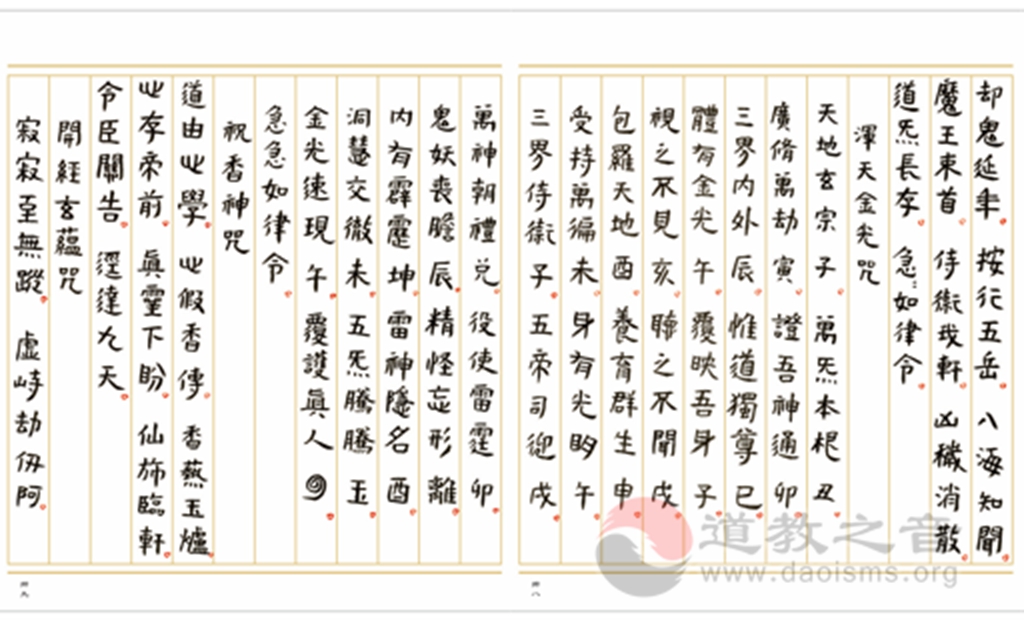 却鬼延年 按行五岳 八海知聞
魔王束首 侍衛我軒 凶穢消散
道炁長存 急:如律令
渾天金光咒
天地玄宗子 萬炁本根丑
廣脩萬劫寅 證吾神通卯
三界内外辰 惟道獨尊巳
體有金光午 覆映吾身子
視之不見亥 聽之不聞戌
包羅天地酉 養育群生申
受持萬徧未 身有光明午
三界侍衛子 五帝司迎戌
萬神朝禮兑 役使雷霆卯
鬼妖喪膽辰 精怪忘形離
内有霹靂坤 雷神隱名酉
洞慧交徹未 五炁騰騰玉
金光速現午 覆護眞人
急急如律令
祝香神咒
道由心學 心假香傳 香爇玉爐
心存帝前 眞霊下盼 仙旆臨軒
令臣關告 逕達九天
開經玄藴咒
寂寂至無蹤 虛峙劫仞阿
道教之音
www.daoisms.org